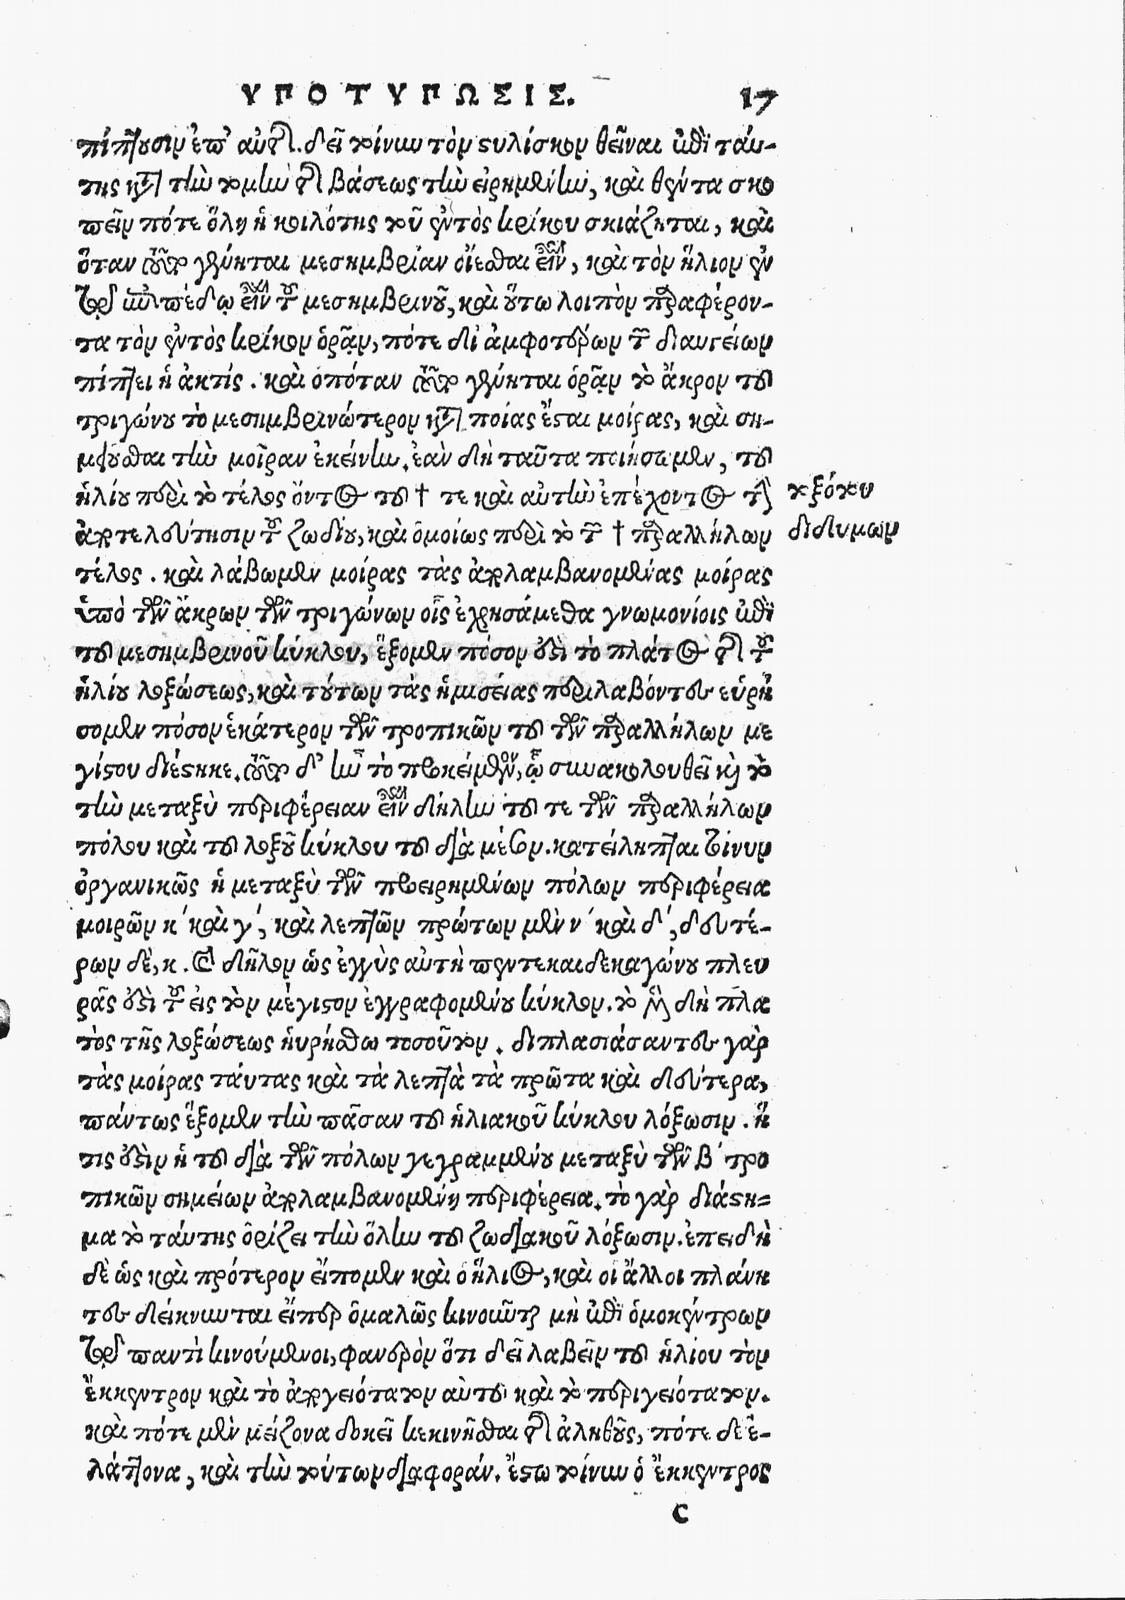 ΥΠΟΤΥΠΩΣΙΣ. 17
πίπτουσιν ἐπ' αὐτῆς. δεῖ τοίνυν τὸν στυλίσκον θεῖναι ἐπὶ ταύ-
της κατὰ τὴν τομὴν τῆς βάσεως τὴν εἰρημένην, καὶ θέντα σκο
πεῖν πότε ὅλη ἡ κοιλότης τοῦ ἐντὸς κρίκου σκιάζεται, καὶ
ὅταν τοῦτο γένηται μεσημβρίαν οἴεσθαι εἶναι, καὶ τὸν ἥλιον ἐν
τῷ ἐπιπέδῳ εἶναι τοῦ μεσημβρινοῦ, καὶ οὕτω λοιπὸν παραφέρον-
τα τὸν ἐντὸς κρίκον ὁρᾷν, πότε δι' ἀμφοτέρων τῶν διαυγείων
πίπτει ἡ ἀκτίς. καὶ ὁπόταν τοῦτο γένηται ὁρᾷν τὸ ἄκρον τοῦ
τριγώνου τὸ μεσημβρινώτερον κατὰ ποίας ἔσται μοίρας, καὶ ση-
μειοῦσθαι τὴν μοῖραν ἐκείνην. ἐὰν δὴ ταῦτα ποιήσωμεν, τοῦ
ἡλίου περὶ τὸ τέλος ὄντος τοῦ † τε καὶ αὐτὴν ἐπέχοντος τὴν
ἀποτελεύτησιν τοῦ ζωδίου, καὶ ὁμοίως περὶ τὸ τῶν † παραλλήλων
τέλος. καὶ λάβωμεν μοίρας τὰς ἀπολαμβανομένας μοίρας
ὑπὸ τῶν ἄκρων τῶν τριγώνων οἷς ἐχρησάμεθα γνωμονίοις ἐπὶ
τοῦ μεσημβρινοῦ κύκλου, ἕξομεν πόσον ἐστὶ τὸ πλάτος τῆς τοῦ
ἡλίου λοξώσεως, καὶ τούτων τὰς ἡμισείας περιλαβόντες εὑρή
σομεν πόσον ἑκάτερον τῶν τροπικῶν τοῦ τῶν παραλλήλων με
γίστου διέστηκε. τοῦτο δ' ἦν τὸ προκείμενον, ᾧ συνακολουθεῖ καὶ τὸ
τὴν μεταξὺ περιφέρειαν εἶναι δήλην τοῦ τε τῶν παραλλήλων
πόλου καὶ τοῦ λοξοῦ κύκλου τοῦ διὰ μέσων. κατείληπται τοίνυν
ὀργανικῶς ἡ μεταξὺ τῶν προειρημένων πόλων περιφέρεια
μοιρῶν κ' καὶ γ', καὶ λεπτῶν πρώτων μὲν ν' καὶ δ', δευτέ-
ρων δὲ, κ. καὶ δῆλον ὡς ἐγγὺς αὐτὴ πεντεκαιδεκαγώνου πλευ
ρᾶς ἐστὶ τοῦ εἰς τὸν μέγιστον ἐγγραφομένου κύκλον. τὸ μὲν δὴ πλα
τὸς τῆς λοξώσεως ηὑρήσθω τοσοῦτον. διπλασιάσαντες γὰρ
τὰς μοίρας ταύτας καὶ τὰ λεπτὰ τὰ πρῶτα καὶ δεύτερα,
πάντως ἕξομεν τὴν πᾶσαν τοῦ ἡλιακοῦ κύκλου λόξωσιν. ἥ
τις ἐστὶν ἡ τοῦ διὰ τῶν πόλων γεγραμμένου μεταξὺ τῶν β' τρο
πικῶν σημείων ἀπολαμβανομένη περιφέρεια. τὸ γὰρ διάστη-
μα τὸ ταύτης ὁρίζει τὴν ὅλην τοῦ ζωδιακοῦ λόξωσιν. ἐπειδὴ
δὲ ὡς καὶ πρότερον εἴπομεν καὶ ὁ ἥλιος, καὶ οἱ ἄλλοι πλάνη
τες δείκνυνται εἴπερ ὁμαλῶς κινοῦνται μὴ ἐπὶ ὁμοκέντρων
τῷ παντὶ κινούμενοι, φανερὸν ὅτι δεῖ λαβεῖν τοῦ ἡλίου τὸν
ἔκκεντρον καὶ τὸ ἀπογειότατον αὐτοῦ καὶ τὸ περιγειότατον.
καὶ πότε μὲν μείζονα δοκεῖ κεκινῆσθαι τῆς ἀληθοῦς, πότε δὲ ἐ-
λάττονα, καὶ τὴν τούτων διαφοράν. ἔστω τοίνυν ὁ ἔκκεντρος
C
τοξότου
διδύμων